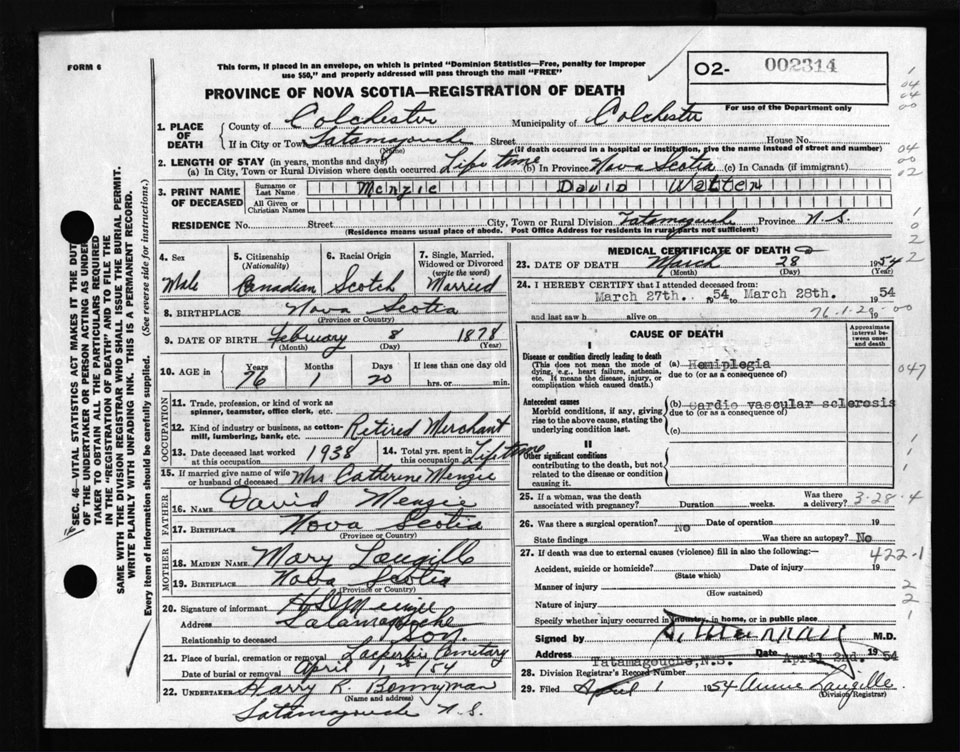 FORM 6
This form, if placed in an envelope, on which is printed "Dominion Statistics—Free, penalty for improper
use $50," and properly addressed will pass through the mail "FREE"
02- 002314
PROVINCE OF NOVA SCOTIA—REGISTRATION OF DEATH
For use of the Department only
SEC. 46—VITAL STATISTICS ACT MAKES IT THE DUTY
OF THE UNDERTAKER OR PERSON ACTING AS UNDER-
TAKER TO OBTAIN ALL THE PARTICULARS REQUIRED
IN THE "REGISTRATION OF DEATH" AND TO FILE THE
SAME WITH THE DIVISION REGISTRAR WHO SHALL ISSUE THE BURIAL PERMIT.
WRITE PLAINLY WITH UNFADING INK. THIS IS A PERMANENT RECORD.
Every item of information should be carefully supplied. (See reverse side for instructions.)
1. PLACE OF DEATH
County of Colchester Municipality of Colchester
If in City or Town Tatamagouche Street House No.
(Name) (If death occurred in a hospital or institution, give the name instead of street and number)
2. LENGTH OF STAY (in years, months and days)
(a) In City, Town or Rural Division where death occurred Life time (b) In Province Nova Scotia (c) In Canada (if immigrant)
3. PRINT NAME OF DECEASED
Surname or Last Name Menzie David Walter
All Given or Christian Names
RESIDENCE No. Street City, Town or Rural Division Tatamagouche Province N.S.
(Residence means usual place of abode. Post Office Address for residents in rural parts not sufficient)
4. Sex Male
5. Citizenship (Nationality) Canadian
6. Racial Origin Scotch
7. Single, Married, Widowed or Divorced (write the word) Married
8. BIRTHPLACE Nova Scotia
(Province or Country)
9. DATE OF BIRTH February 8 1878
(Month) (Day) (Year)
10. AGE in Years 76 Months 1 Days 20 If less than one day old
hrs. or min.
OCCUPATION
11. Trade, profession, or kind of work as
spinner, teamster, office clerk, etc.
12. Kind of industry or business, as cotton-
mill, lumbering, bank, etc. Retired Merchant
13. Date deceased last worked at this occupation 1938
14. Total yrs. spent in this occupation Life time
15. If married give name of wife or husband of deceased Mrs Catherine Menzie
FATHER
16. Name David Menzie
17. Birthplace Nova Scotia
(Province or Country)
MOTHER
18. MAIDEN NAME Mary Langille
19. BIRTHPLACE Nova Scotia
(Province or Country)
20. Signature of informant
Address Tatamagouche
Relationship to deceased Son.
21. Place of burial, cremation or removal Cemetary
Date of burial or removal April 1st /54
22. UNDERTAKER Harry R. Bonnyman
(Name and address)
Tatamagouche N.S.
MEDICAL CERTIFICATE OF DEATH
23. DATE OF DEATH March 28 1954
(Month) (Day) (Year)
24. I HEREBY CERTIFY that I attended deceased from:
March 27th. 1954 to March 28th. 1954
and last saw h alive on 19
76-1-20-00
CAUSE OF DEATH
Approximate interval between onset and death
I
Disease or condition directly leading to death
(This does not mean the mode of dying, e.g., heart failure, asthenia, etc. It means the disease, injury, or complication which caused death.)
(a) Hemiplegia
due to (or as a consequence of)
Antecedent causes
Morbid conditions, if any, giving rise to the above cause, stating the underlying condition last.
(b) Cardio vascular sclerosis
due to (or as a consequence of)
(c)
II
Other significant conditions
contributing to the death, but not related to the disease or condition causing it.
25. If a woman, was the death associated with pregnancy? Duration weeks. Was there a delivery? 3-28-4
26. Was there a surgical operation? No Date of operation 19
State findings Was there an autopsy? No
27. If death was due to external causes (violence) fill in also the following:— 422-1
Accident, suicide or homicide? Date of injury 19
(State which)
Manner of injury
(How sustained)
Nature of injury
Specify whether injury occurred in industry, in home, or in public place
Signed by M.D.
Address Tatamagouche, N.S. Date April 2nd. 1954
28. Division Registrar's Record Number
29. Filed April 1 1954 Annie Langille
(Division Registrar)
1
04
04
00
04
00
02
1
0
2
2
047
1
1
1
2
2
1